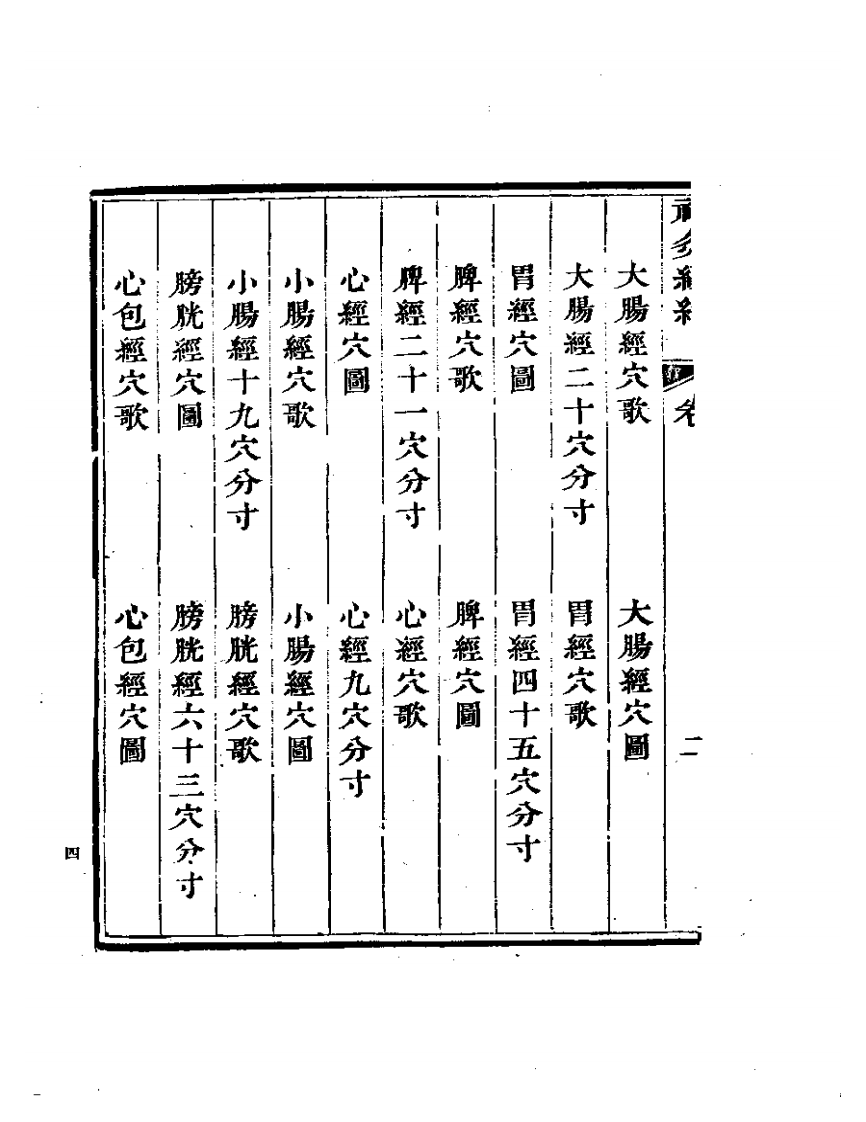 大腸經穴歌　大腸經穴圖
大腸經二十穴分寸　胃經穴歌
胃經穴圖　胃經四十五穴分寸
脾經穴歌　脾經穴圖
脾經二十一穴分寸　心經穴歌
心經穴圖　心經九穴分寸
小腸經穴歌　小腸經穴圖
小腸經十九穴分寸　膀胱經穴歌
膀胱經穴圖　膀胱經六十三穴分寸
心包經穴歌　心包經穴圖
二
四